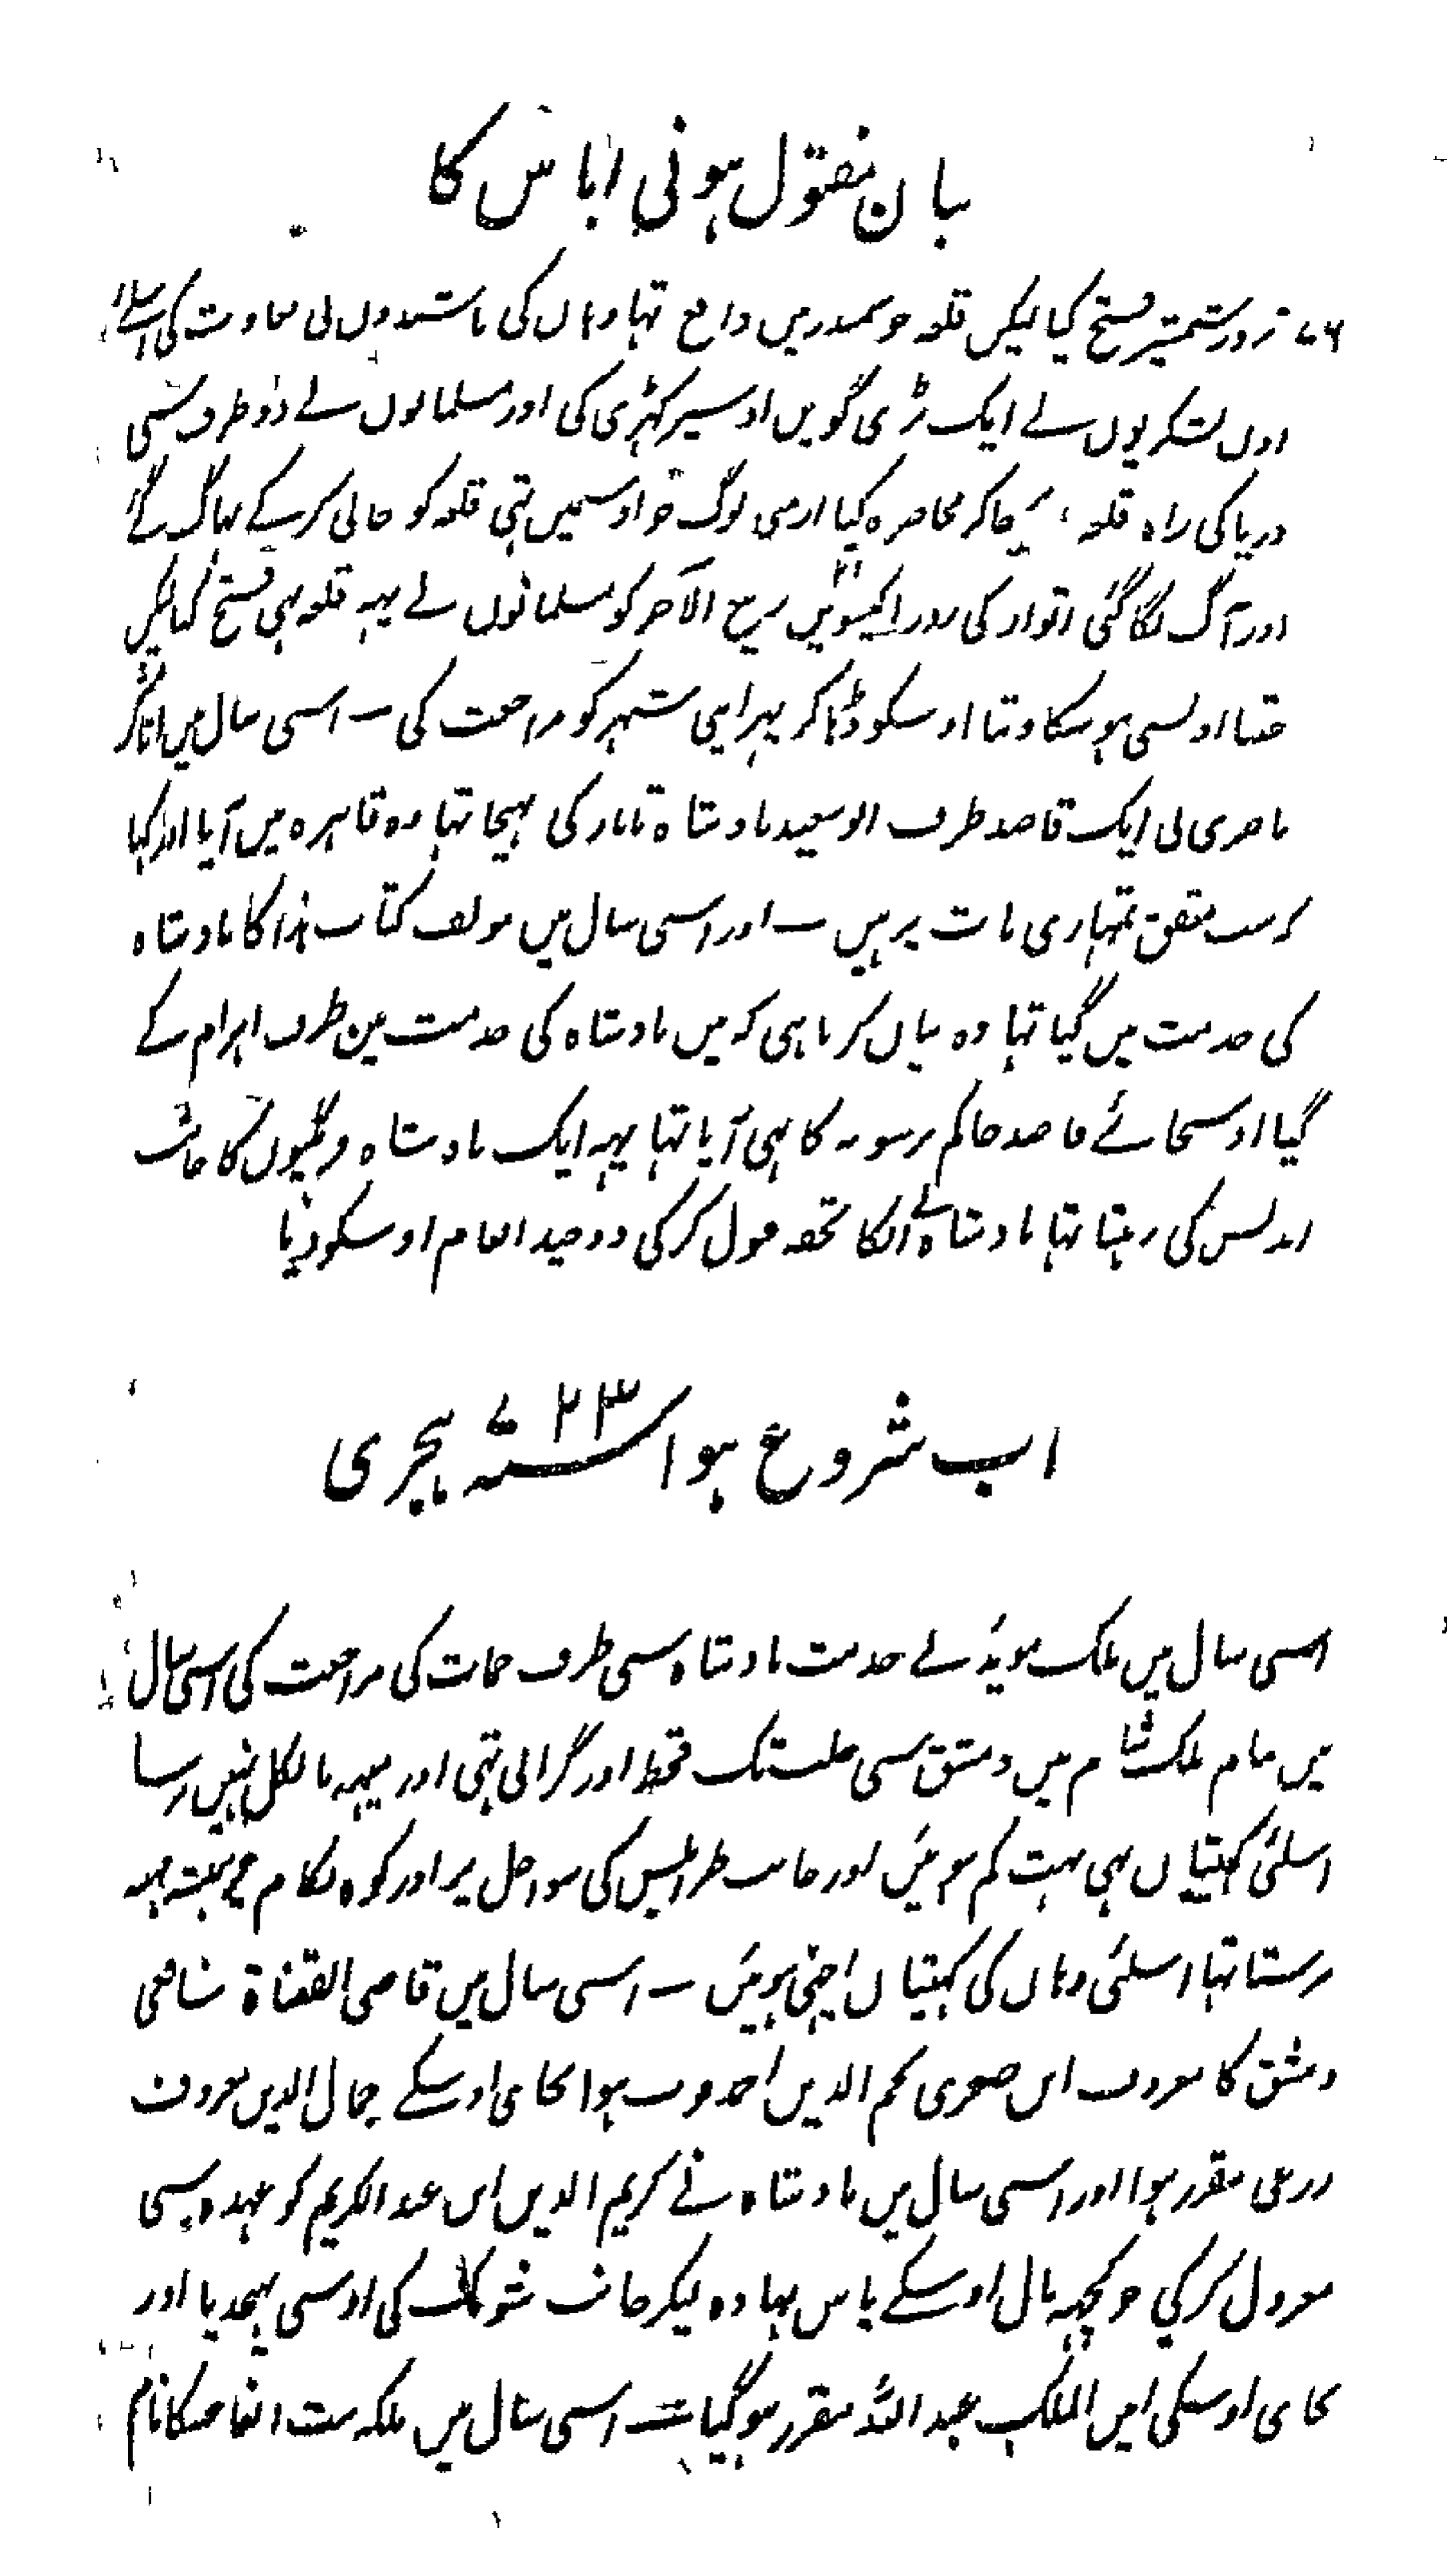 بیان مقتول ہونی ایاس کا
بزور شمشیر فتح کیا لیکن قلعہ جو سمندر میں واقع تہا وہاں کی باشندوں نی بغاوت کی اسلئے
اون لشکریوں نے ایک بڑی گوپن اوسپر کہڑی کی اور مسلمانوں نے دو طرف سی
دریا کی راہ قلعہ پر جاکر محاصرہ کیا ارمنی لوگ جو اوسمیں تہی قلعہ کو خالی کرکے بہاگ گئے
اور آگ لگا گئی اتوار کی روز اکیسویں ربیع الآخر کو مسلمانوں نے یہہ قلعہ بہی فتح کیا لیکن
جتنا اونسی ہو سکا وتنا اوسکو ڈہاکر پہر اپنی شہر کو مراجعت کی ۔ اسی سال میں
ناصری نی ایک قاصد طرف ابو سعید بادشاہ تاتار کی بہیجا تہا وہ قاہرہ میں آیا اور کہا
کہ سب متفق تمہاری بات پر ہیں ۔ اور اسی سال میں مولف کتاب ہذا کا بادشاہ
کی خدمت میں گیا تہا وہ بیان کرتا ہی کہ میں بادشاہ کی خدمت مین طرف اہرام کے
گیا اوسجائے قاصد حاکم برسونہ کا بہی آیا تہا یہہ ایک بادشاہ فرنگیوں کا جانب
اندلس کی رہتا تہا بادشاہ نے انکا تحفہ قبول کرکی دو چند انعام اوسکو دیا
اب شروع ہوا سنہ ۷۲۳ ہجری
اسی سال میں ملک موید نے خدمت بادشاہ سی طرف حمات کی مراجعت کی اسی سال
میں تمام ملک شام میں دمشق سی حلب تک قحط اور گرانی تہی اور مینہہ بالکل نہیں برسا
اسلئی کہیتیاں بہی بہت کم ہوئیں اور جانب طرابلس کی سواحل پر اور کوہ لکام پر ہمیشہ مینہہ
برستا تہا اسلئی وہاں کی کہیتیاں اچہی ہوئیں ۔ اسی سال میں قاضی القضاۃ شافعی
دمشق کا معروف ابن صصری نجم الدین احمد فوت ہوا بجای اوسکے جمال الدین معروف
زرعی مقرر ہوا اور اسی سال میں بادشاہ نے کریم الدین ابن عبد الکریم کو عہدہ سی
معزول کرکی جو کچہہ مال اوسکے پاس تہا وہ لیکر جانب شوبک کی اوسی بہیجدیا اور
بجای اوسکی امین الملک عبد اللہ مقرر ہوگیا ۔ اسی سال میں ملکہ بنت ابغا جسکا نام